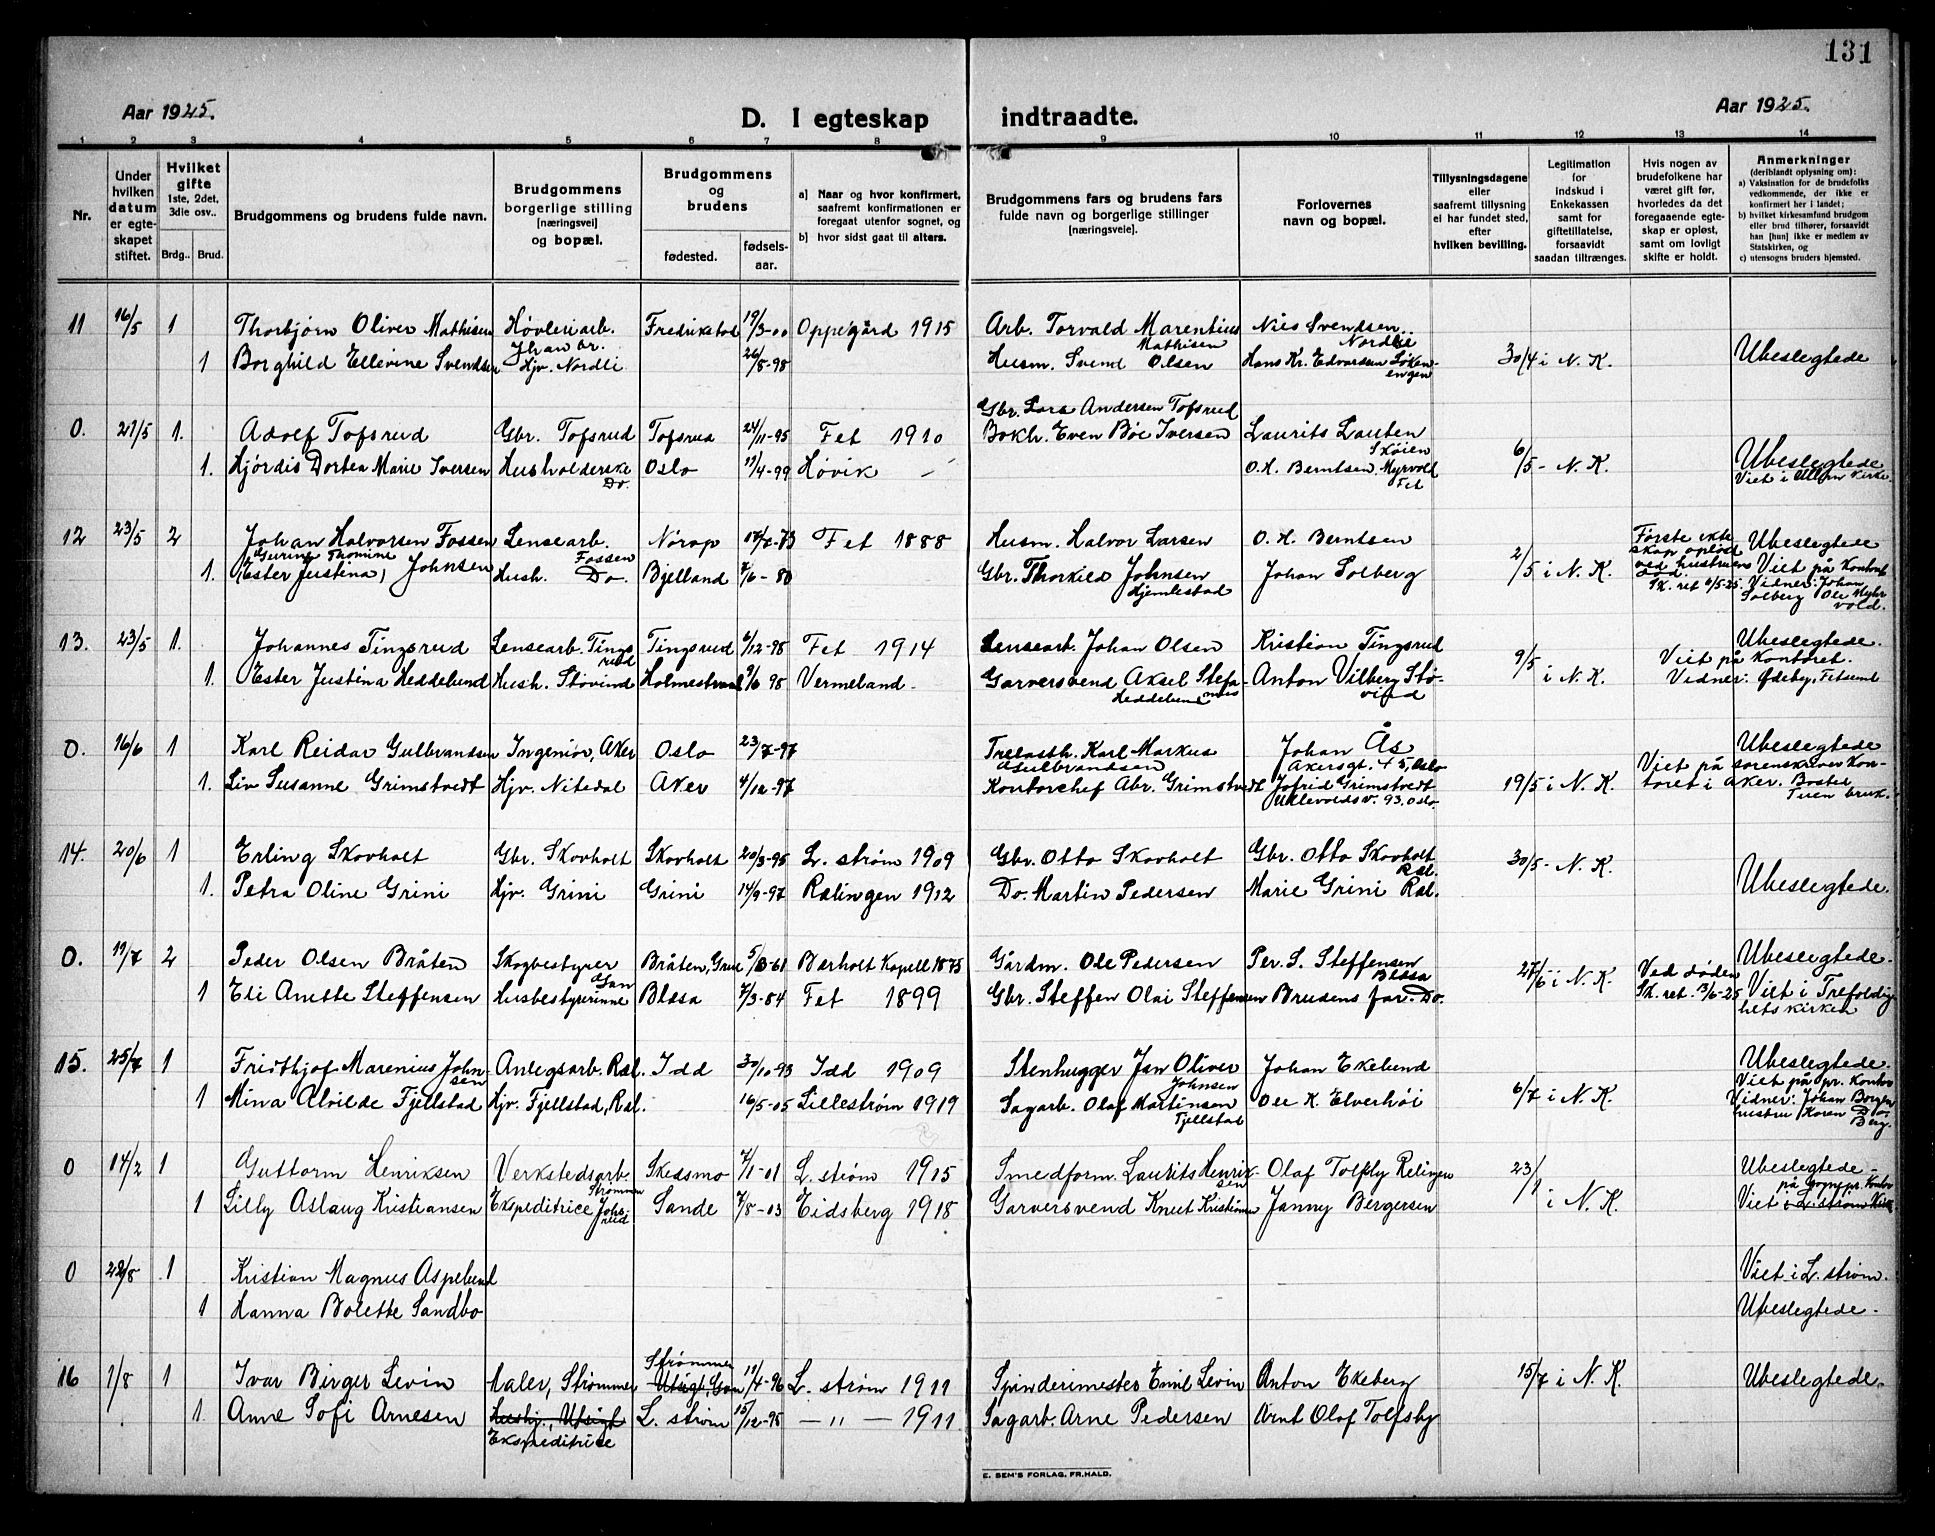 131
Aar 1925.
D. I egteskap indtraadte.
Aar 1925.
1 2 3 4 5 6 7 8 9 10 11 12 13 14
Nr.
Under hvilken datum er egteskapet stiftet.
Hvilket gifte 1ste, 2det, 3die osv..
Brdg.. Brud.
Brudgommens og brudens fulde navn.
Brudgommens borgerlige stilling [næringsvei] og bopæl.
Brudgommens og brudens
fødested. fødselsaar.
a) Naar og hvor konfirmert, saafremt konfirmationen er foregaat utenfor sognet, og
b) hvor sidst gaat til alters.
Brudgommens fars og brudens fars fulde navn og borgerlige stillinger [næringsveie].
Forlovernes navn og bopæl.
Tillysningsdagene eller saafremt tillysning ei har fundet sted, efter hvilken bevilling.
Legitimation for indskud i Enkekassen samt for giftetillatelse, forsaavidt saadan tiltrænges.
Hvis nogen av brudefolkene har været gift før, hvorledes da det foregaaende egteskap er opløst, samt om lovligt skifte er holdt.
Anmerkninger (deriblandt oplysning om):
a) Vaksination for de brudefolks vedkommende, der ikke er konfirmert her i landet;
b) hvilket kirkesamfund brudgom eller brud tilhører, forsaavidt han [hun] ikke er medlem av Statskirken, og
c) utensogns bruders hjemsted.
11 16/5 1 Thorbjørn Oliver Mathisen Høvleriarb. Fredrikstad 19/3-00 Oppegård 1915 Arb. Torvald Marentius Mathisen Nils Svendsen Nordlie
1 Borghild Ellevine Svendsen Hjv. Nordli 26/8-98 Husm. Svend Olsen Hans Kr. Edvardsen Løkenengen 30/4 i N. K. Ubeslegtede
0. 21/5 1. Adolf Tofsrud Gbr. Tofsrud Tofsrud 24/11-95 Fet 1910 Gbr. Lars Andersen Tofsrud Laurits Lauten Skøien
1. Hjördis Dortea Marie Iversen Husholderske Do. Oslo 17/4-99 Høvik – Bokh. Even Böe Iversen O. H. Berntsen, Myrvold Fet 6/5 - N. K. Ubeslegtede Viet i Ullern Kirke.
12 23/5 2 Johan Halvorsen Fossen Lensearb. Fossen Nørop 73 Fet 1888 Husm. Halvor Larsen O. H. Berntsen
1. Guring Thomine (Ester Justina) Johnsen Hush. Do. Bjelland 7/6-80 Gbr. Thorkild Johnsen Hjemlestad Johan Solberg 2/5 i N. K. Første ekteskap opløst ved hustruens död. Sk. ret 6/5-25. Ubeslegtede Viet på Kontoret Vidner: Johan Solberg Ole Myhrvold.
13. 23/5 1. Johannes Tingsrud Lensearb. Tingsrud Tingsrud 6/12-98 Fet 1914 Lensearb. Johan Olsen Kristian Tingsrud
1. Ester Justina Heddelund Hush. Støvind Holmestrand 9/6 98 Vermeland. Garversvend Aksel Heddelund Anton Vilberg Støvind 9/5 i N. K. Ubeslegtede. Viet på Kontoret. Vidner: Ødeby, Fetsund
0. 16/6 1 Karl Reidar Gulbrandsen Ingeniør, Aker Oslo 23/7-97 Trelasth. Karl Markus Gulbrandsen Johan Ås Akersgt. 45, Oslo
1. Liv Susanne Grimstvedt Hjv. Nitedal Aker 4/12-97 Kontorchef Abr. Grimstvedt Jofrid Grimstvedt Ullevoldsv. 93, Oslo. 19/5 i N. K. Ubeslegtede Viet på sorenskriverkontoret i Aker. Bosted
14. 20/6 1 Erling Skovholt Gbr. Skovholt Skovholt 20/3-95 L. strøm 1909 Gbr. Otto Skovholt Gbr. Otto Skovholt Ræl.
1. Petra Oline Grini Hjv. Grini Grini 14/9-97 Rælingen 1912 Do. Martin Pedersen Marie Grini Ræl. 30/5- N. K. Ubeslegtede.
0. 19/7 2 Peder Olsen Bråten Skogbestyrer Bråten, Grue 61 Børholt Kapell 1875 Gårdm. Ole Pedersen Per. S. Steffensen Blåsa
1 Eli Anette Steffensen Husbestyrerinne Blåsa 7/3-84 Fet 1899 Gbr. Steffen Olai Steffensen Brudens far. Do. 27/6 i N. K. Ved døden Sk. ret. 13/6-25 Ubeslegtede. Viet i Trefoldighetskirken
15. 25/7 1 Fridthjof Marenius Johnsen Anlegsarb. Ræl. Idd 30/10 93 Idd 1909 Stenhugger Jan Oliver Johnsen Johan Ekelund
1 Mina Alvilde Fjellstad Hjv. Fjellstad, Ræl. 16/5-05 Lillestrøm 1919 Sagarb. Olaf Martinsen Fjellstad Ole K. Elverhöi 6/7 i N. K. Ubeslegtede. Viet på pr. Kontor Vidner: Johan Borgen hustru Karen Do. Berg.
0 14/2 1 Guttorm Henriksen Verkstedsarb. Strømmen Skedsmo 7/1-01 L. strøm 1915 Smedform. Laurits Henriksen Olaf Tolfsby Relingen
1 Lilly Aslaug Kristiansen Ekspeditrice Sande 7/8-03 Eidsberg 1918 Garversvend Knut Kristiansen Janny Bergersen 23/1 i N. K. Ubeslegtede på sognepr. Kontor Viet i L. strøm Kirke
0 1 Kristian Magnus Aspelund Viet i L. strøm.
1 Hanna Bolette Sandbo Ubeslegtede.
16 1/8 1 Ivar Birger Levin Maler, Strømmen Strømmen Utsigt, 19/4-96 L. strøm 1911 Spinderimester Emil Levin Anton Ekeberg 15/7 i N. K. Ubeslegtede.
1. Anne Sofi Arnesen Hushj., Utsigt Ekspeditrice L. strøm 15/12-95 – " – 1911 Sagarb. Arne Pedersen Arnt Olaf Tolfsby
E. SEM'S FORLAG, FR.HALD.